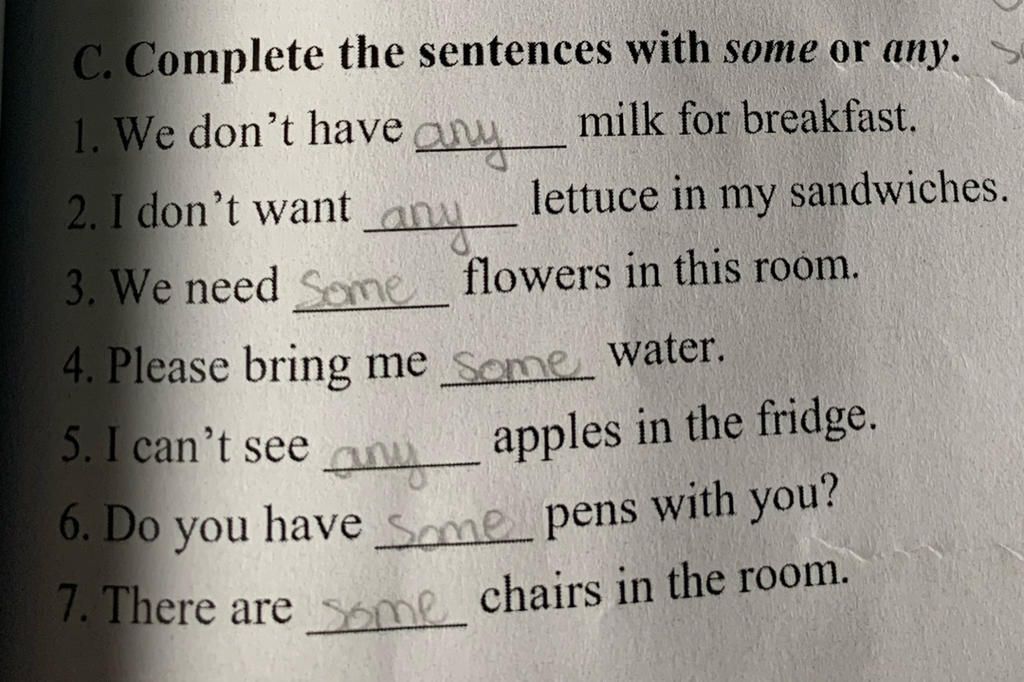 C. Complete the sentences with some or any.
1. We don't have any milk for breakfast.
2. I don't want any lettuce in my sandwiches.
3. We need Some flowers in this room.
4. Please bring me some water.
5. I can't see any apples in the fridge.
6. Do you have some pens with you?
7. There are some chairs in the room.